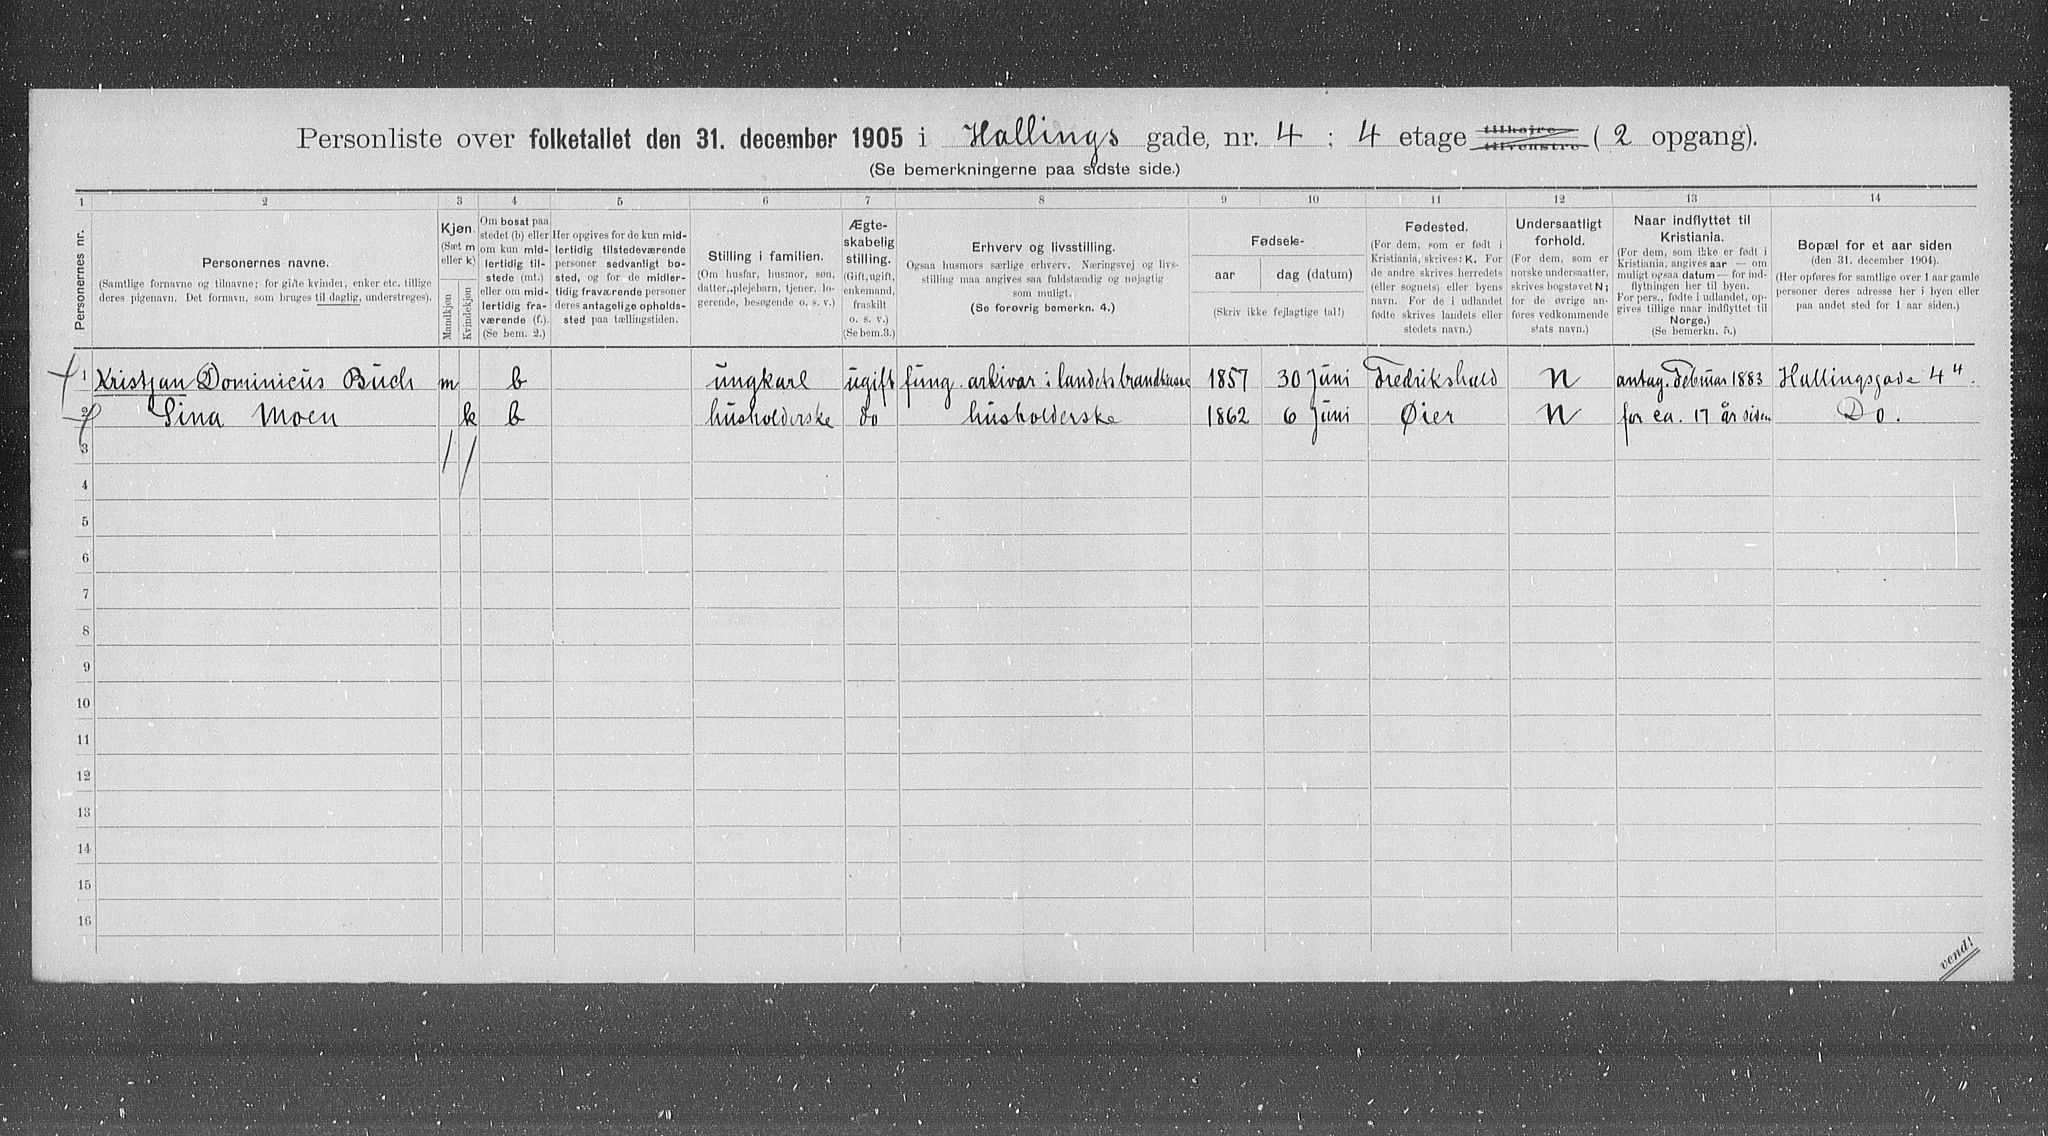 Personliste over folketallet den 31. december 1905 i Hallings gade, nr. 4 ; 4 etage tilhøjre tilvenstre ( 2 opgang).
(Se bemerkningerne paa sidste side.)
1 2 3 4 5 6 7 8 9 10 11 12 13 14
Personernes nr.
Personernes navne.
(Samtlige fornavne og tilnavne; for gifte kvinder, enker etc. tillige
deres pigenavn. Det fornavn, som bruges til daglig, understreges).
Kjøn.
(Sæt m
eller k)
Mandkjøn
Kvindekjøn
Om bosat paa
stedet (b) eller
om kun mid-
lertidig til-
stede (mt.)
eller om mid-
lertidig fra-
værende (f.).
(Se bem. 2.)
Her opgives for de kun mid-
lertidig tilstedeværende
personer sedvanligt bo-
sted, og for de midler-
tidig fraværende personer
deres antagelige opholds-
sted paa tællingstiden.
Stilling i familien.
(Om husfar, husmor, søn,
datter, plejebarn, tjener, lo-
gerende, besøgende o. s. v.)
Ægte-
skabelig
stilling.
(Gift, ugift,
enkemand,
fraskilt
o. s. v.)
(Se bem.3.)
Erhverv og livsstilling.
Ogsaa husmors særlige erhverv. Næringsvej og livs-
stilling maa angives saa fuldstændig og nøjagtig
som muligt.
(Se forøvrig bemerkn. 4.)
Fødsels-
aar dag (datum)
(Skriv ikke fejlagtige tal!)
Fødested.
(For dem, som er født i
Kristiania, skrives: K. For
de andre skrives herredets
(eller sognets) eller byens
navn. For de i udlandet
fødte skrives landets eller
stedets navn.)
Undersaatligt
forhold.
(For dem, som er
norske undersaatter,
skrives bogstavet N;
for de øvrige an-
føres vedkommende
stats navn.)
Naar indflyttet til
Kristiania.
(For dem, som ikke er født i
Kristiania, angives aar — om
muligt ogsaa datum — for ind-
flytningen her til byen.
For pers., fødte i udlandet, op-
gives tillige naar indflyttet til
Norge.)
(Se bemerkn. 5.)
Bopæl for et aar siden
(den 31. december 1904).
(Her opføres for samtlige over 1 aar gamle
personer deres adresse her i byen eller
paa andet sted for 1 aar siden.)
1 Kristjan Dominicus Buch m b ungkarl ugift fung. arkivar i landets brandkasse 1857 30 Juni Fredrikshald N antag. Februar 1883 Hallingsgade 4 4.
2 Sina Moen k b husholderske do husholderske 1862 6 Juni Øier N for ca. 17 år siden Do.
3
4
5
6
7
8
9
10
11
12
13
14
15
16
vend!